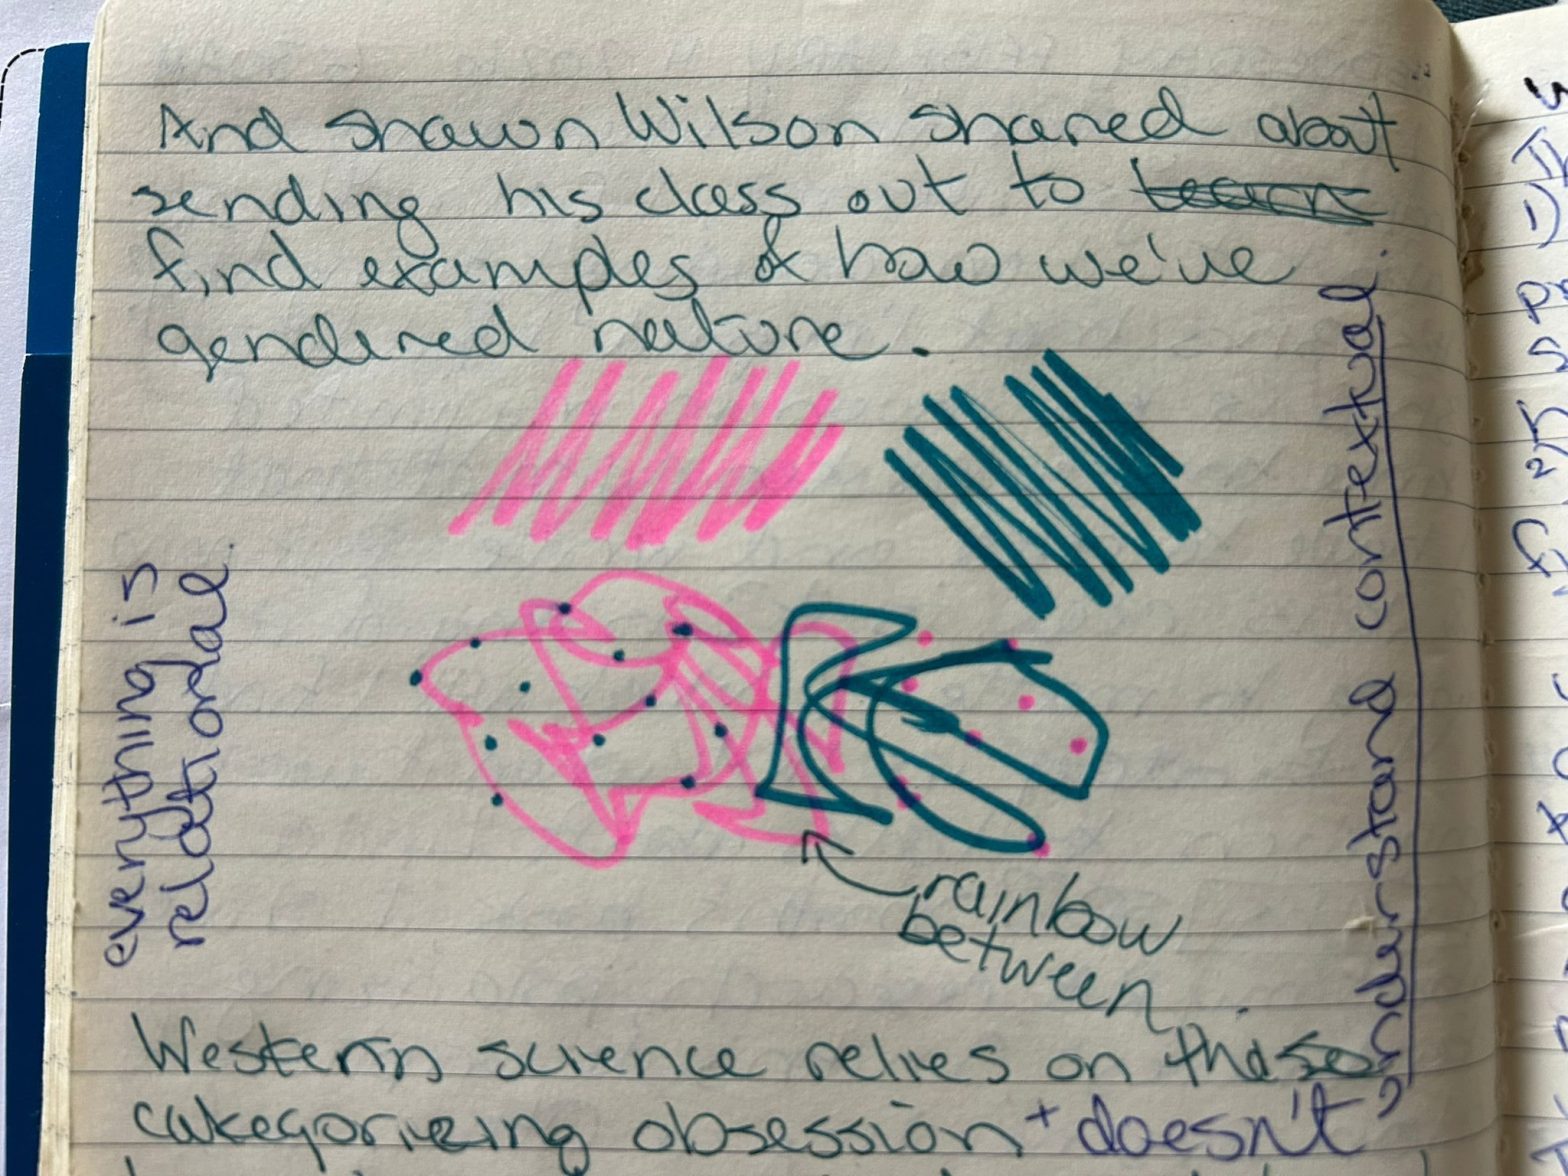 And Shawn Wilson shared about
sending his class out to learn
find examples & how we've
gendered nature.
everything is
relational.
understand contextual.
rainbow
between
Western science relies on this
categorizing obsession + doesn't